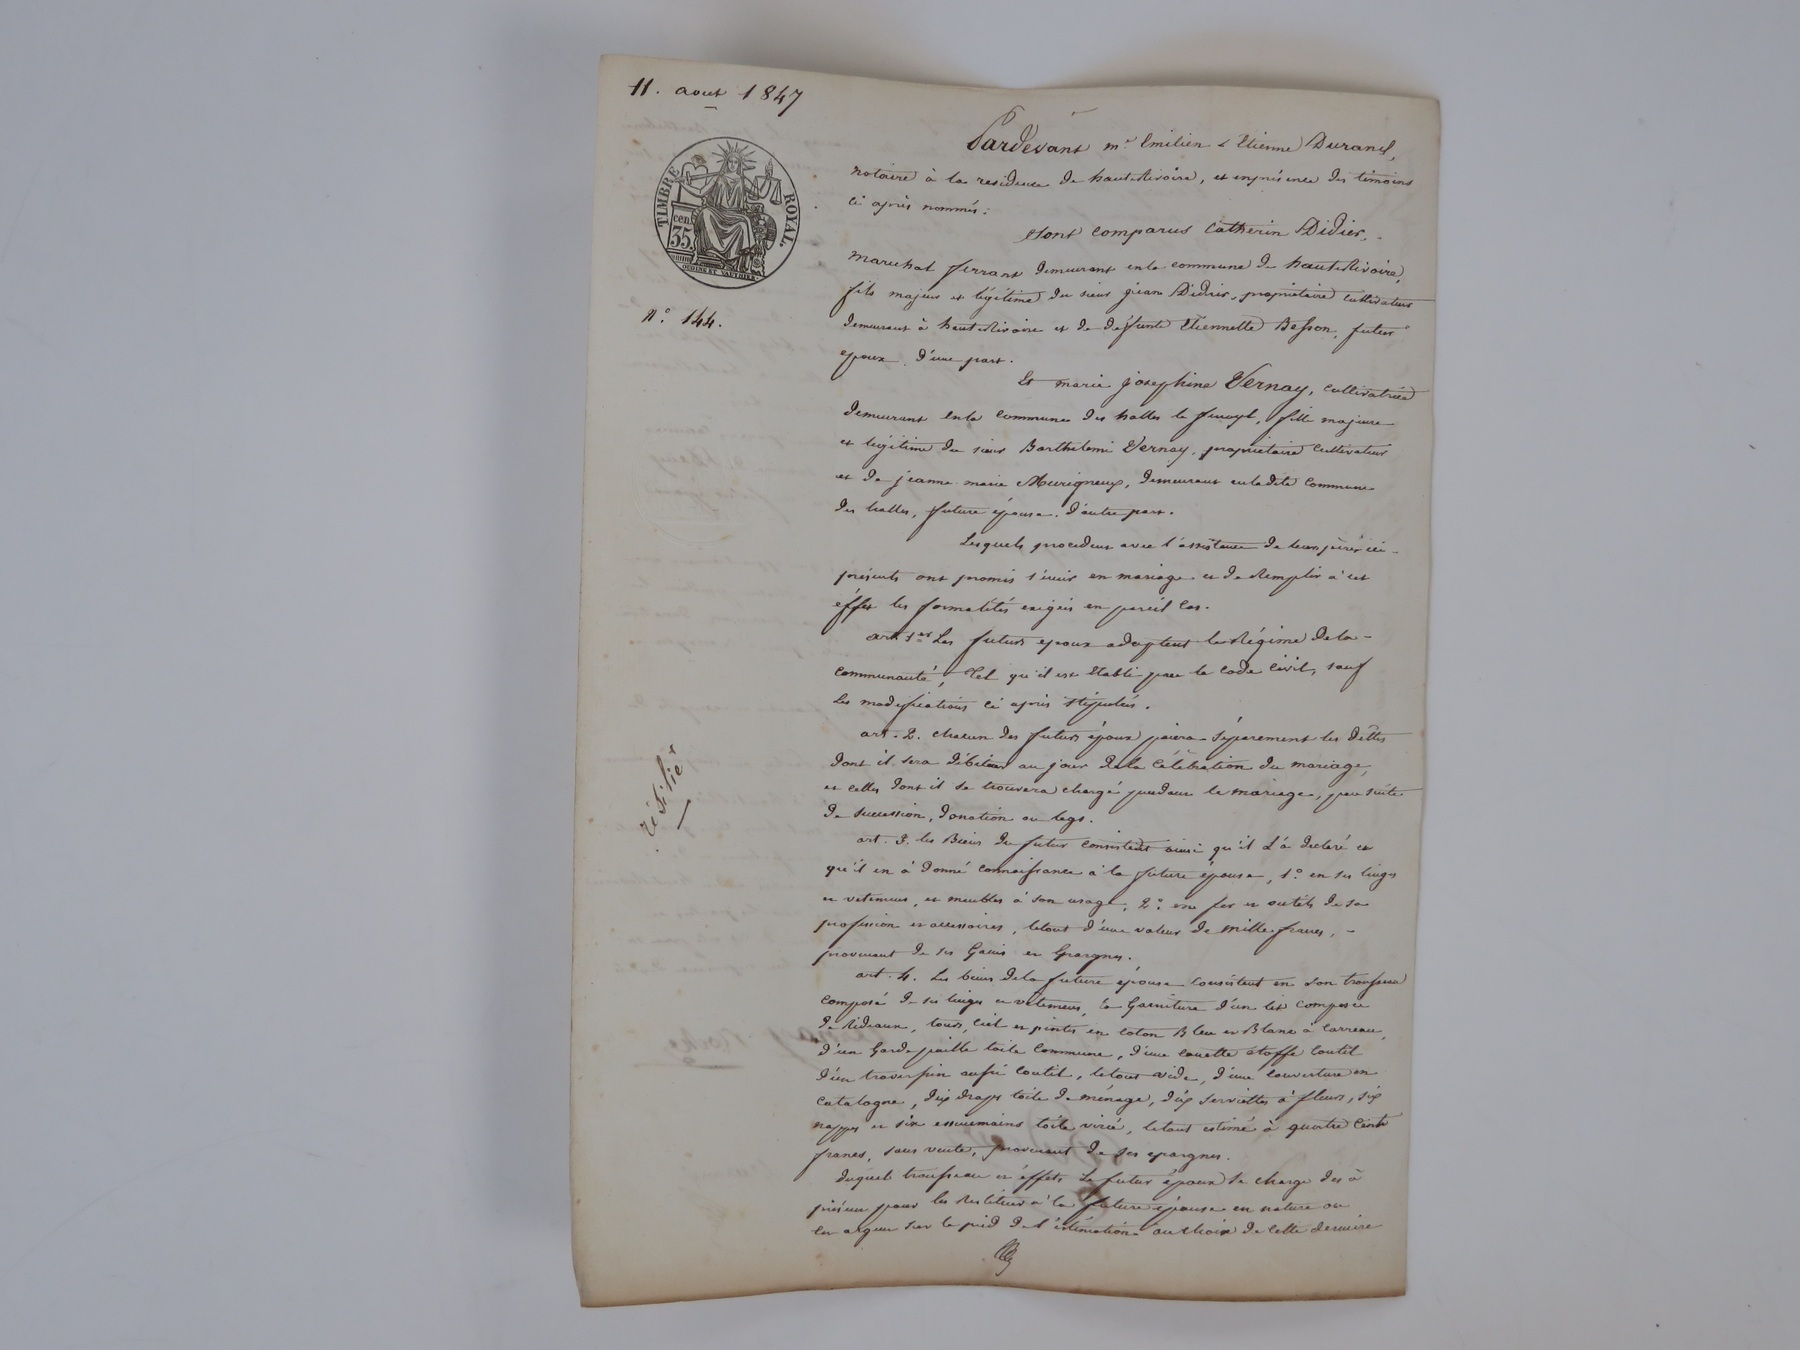 11. aout 1847
TIMBRE ROYAL.
cen.
35.
N.° 144.
résilié
Pardevant m.e Emilien Etienne Durand,
notaire à la residence de hauterivoire, et enprésence des témoins
ci après nommés:
Sont comparus Catherin Didier,
marechal ferrant demeurant enla commune de hauterivoire,
fils majeur et légitime du sieur jean Didier, propriétaire cultivateur
demeurant à hauterivoire et de defunte Etiennette Besson, futur
epoux d'une part.
Et marie josephine Vernay, cultivatrice
demeurant enla commune des halles le fenoyl, fille majeure
et légitime du sieur Barthelemi Vernay, propriétaire cultivateur
et de jeanne marie Murigneux, demeurant enladite commune
des halles, future épouse. d'autre part.
Lesquels procedent avec l'assistance de leurs pères ici
présents ont promis s'unir en mariage et de Remplir à cet
éffet les formalités exigées en pareil cas.
art. 1er Les futurs epoux adoptent le Régime dela
communauté, tel qu'il est établi par le code civil, sauf
les modifications ci après stipulées.
art. 2. chacun des futurs époux paiera séparement les dettes
dont il sera débiteur au jour dela célébration du mariage,
et celles dont il se trouvera chargé pendant le mariage, par suite
de succession, donation ou legs.
art. 3. les Biens du futur consistent ainsi qu'il l'à declaré et
qu'il en à donné connaissance à la future épouse, 1.° en ses linges
et vetements, et meubles à son usage, 2.° en fer et outils de sa
profession et accessoires, letout d'une valeur de mille francs,
provenant de ses Gains et Epargnes.
art. 4. Les biens dela future épouse consistent en son trousseau
composé de ses linges et vêtements, la Garniture d'un lit composée
de Rideaux, tours, ciel et pintes en coton Bleu et Blanc à carreau,
d'un Garde paille toile commune, d'une couette étoffe coutil
d'un traversin aussi coutil, letout vide, d'une couverture en
catalogne, dix draps toile de ménage, dix serviettes à fleurs, six
nappes et six essuiemains toile virée, letout estimé à quatre cents
francs, sans vente, provenant de ses epargnes.
duquel trousseau et éffets le futur époux se charge dès à
présent pour les Restituer à la future épouse en nature ou
en argent sur le pied de l'estimation au choix de cette derniere